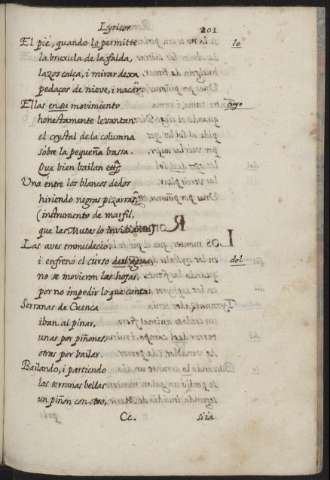 Lyricos
201
El pie, quando lo permitte
lo
la bruxula de la falda,
lazos calça, i mirar dexa
pedaços de nieve, i nacar.
Ellas en cuio movimiento
cuyo
honestamente levantan
el crystal de la columna
sobre la pequeña bassa.
Que bien bailan etc.
Una entre los blancos dedos
hiriendo negras pizarras,
(instrumento de marfil,
que las Musas lo invidiaran)
Las aves enmudeció,
i enfrenó el curso del agua,
del
no se movieron las hojas,
por no impedir lo que canta.
Serranas de Cuenca
iban al pinar,
unas por piñones,
otras por bailar.
Bailando, i partiendo
las serranas bellas
un piñon con otro,
Cc.